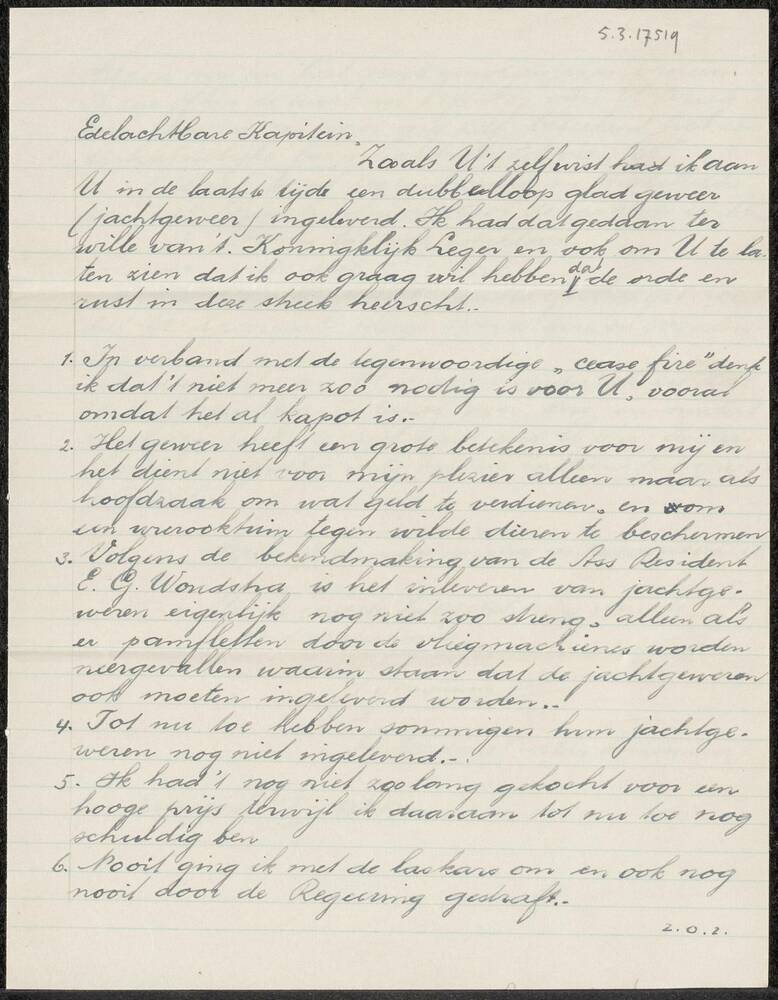 5.3.17519
Edelachtbare Kapitein,
Zooals U't zelf wist had ik aan
U in de laatste tijde een dubbelloop glad geweer
(jachtgeweer) ingeleverd. Ik had dat gedaan ter
wille van 't. Konningklijk Leger en ook om U te la-
ten zien dat ik ook graag wil hebben dat de orde en
rust in deze streek heerscht.-
1. In verband met de tegenwoordige „cease fire" denk
ik dat 't niet meer zoo nodig is voor U, vooral
omdat het al kapot is.-
2. Het geweer heeft een grote betekenis voor mij en
het dient niet voor mijn plezier alleen maar als
hoofdzaak om wat geld te verdienen, en om
een tegen wilde dieren te beschermen
3. Volgens de bekendmaking van de Ass Resident
E. G. is het inleveren van jachtge-
weren eigenlijk nog niet zoo streng, alleen als
er pamfletten door de vliegmachienes worden
neergevallen waarin staan dat de jachtgeweren
ook moeten ingeleverd worden.-
4. Tot nu toe hebben sommigen hun jachtge-
weren nog niet ingeleverd.-
5. Ik had 't nog niet zoolang gekocht voor een
hooge prijs terwijl ik daaraan tot nu toe nog
schuldig ben
6. Nooit ging ik met de laskars om en ook nog
nooit door de Regeering gestraft.-
z.o.z.